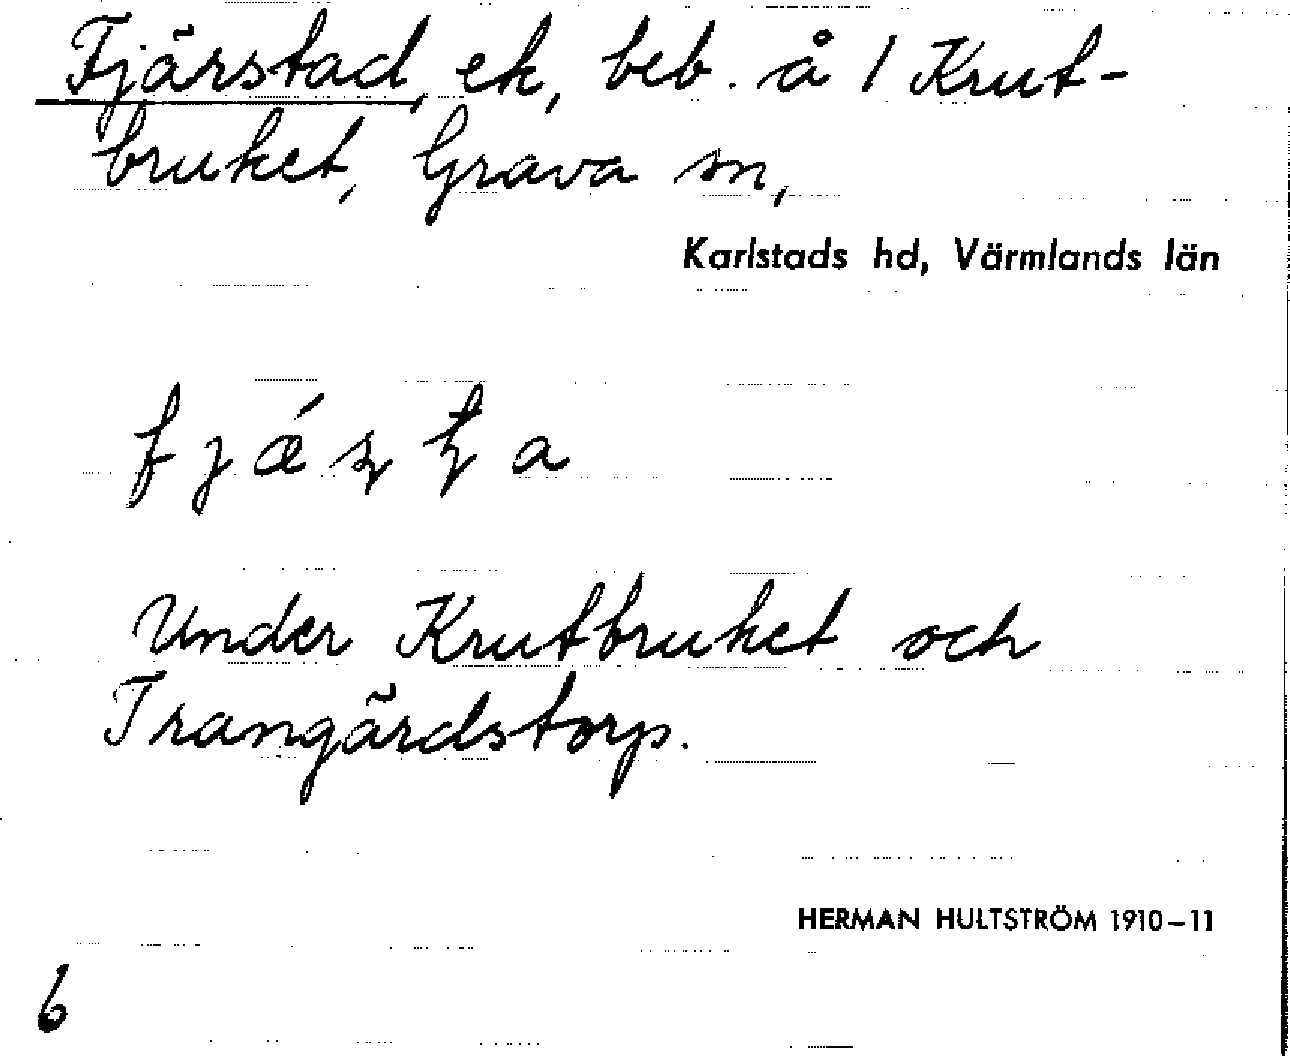 Fjärstad, ek, beb. å 1 Krut-
bruket, Grava sn,
Karlstads hd, Värmlands län
Under Krutbruket och
Trangärdstorp.
HERMAN HULTSTRÖM 1910–11
6